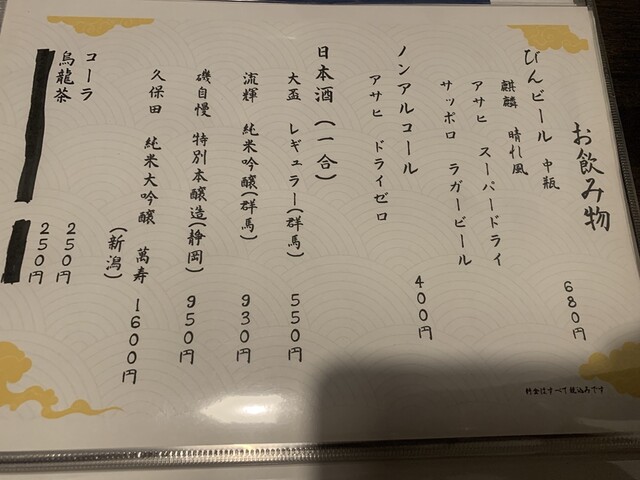 お飲み物
びんビール 中瓶 680円
麒麟 晴れ風
アサヒ スーパードライ
サッポロ ラガービール
ノンアルコール 400円
アサヒ ドライゼロ
日本酒(一合)
大盃 レギュラー(群馬) 550円
流輝 純米吟醸(群馬) 930円
磯自慢 特別本醸造(静岡) 950円
久保田 純米大吟醸 萬寿(新潟) 1600円
コーラ 250円
烏龍茶 250円
料金はすべて税込みです